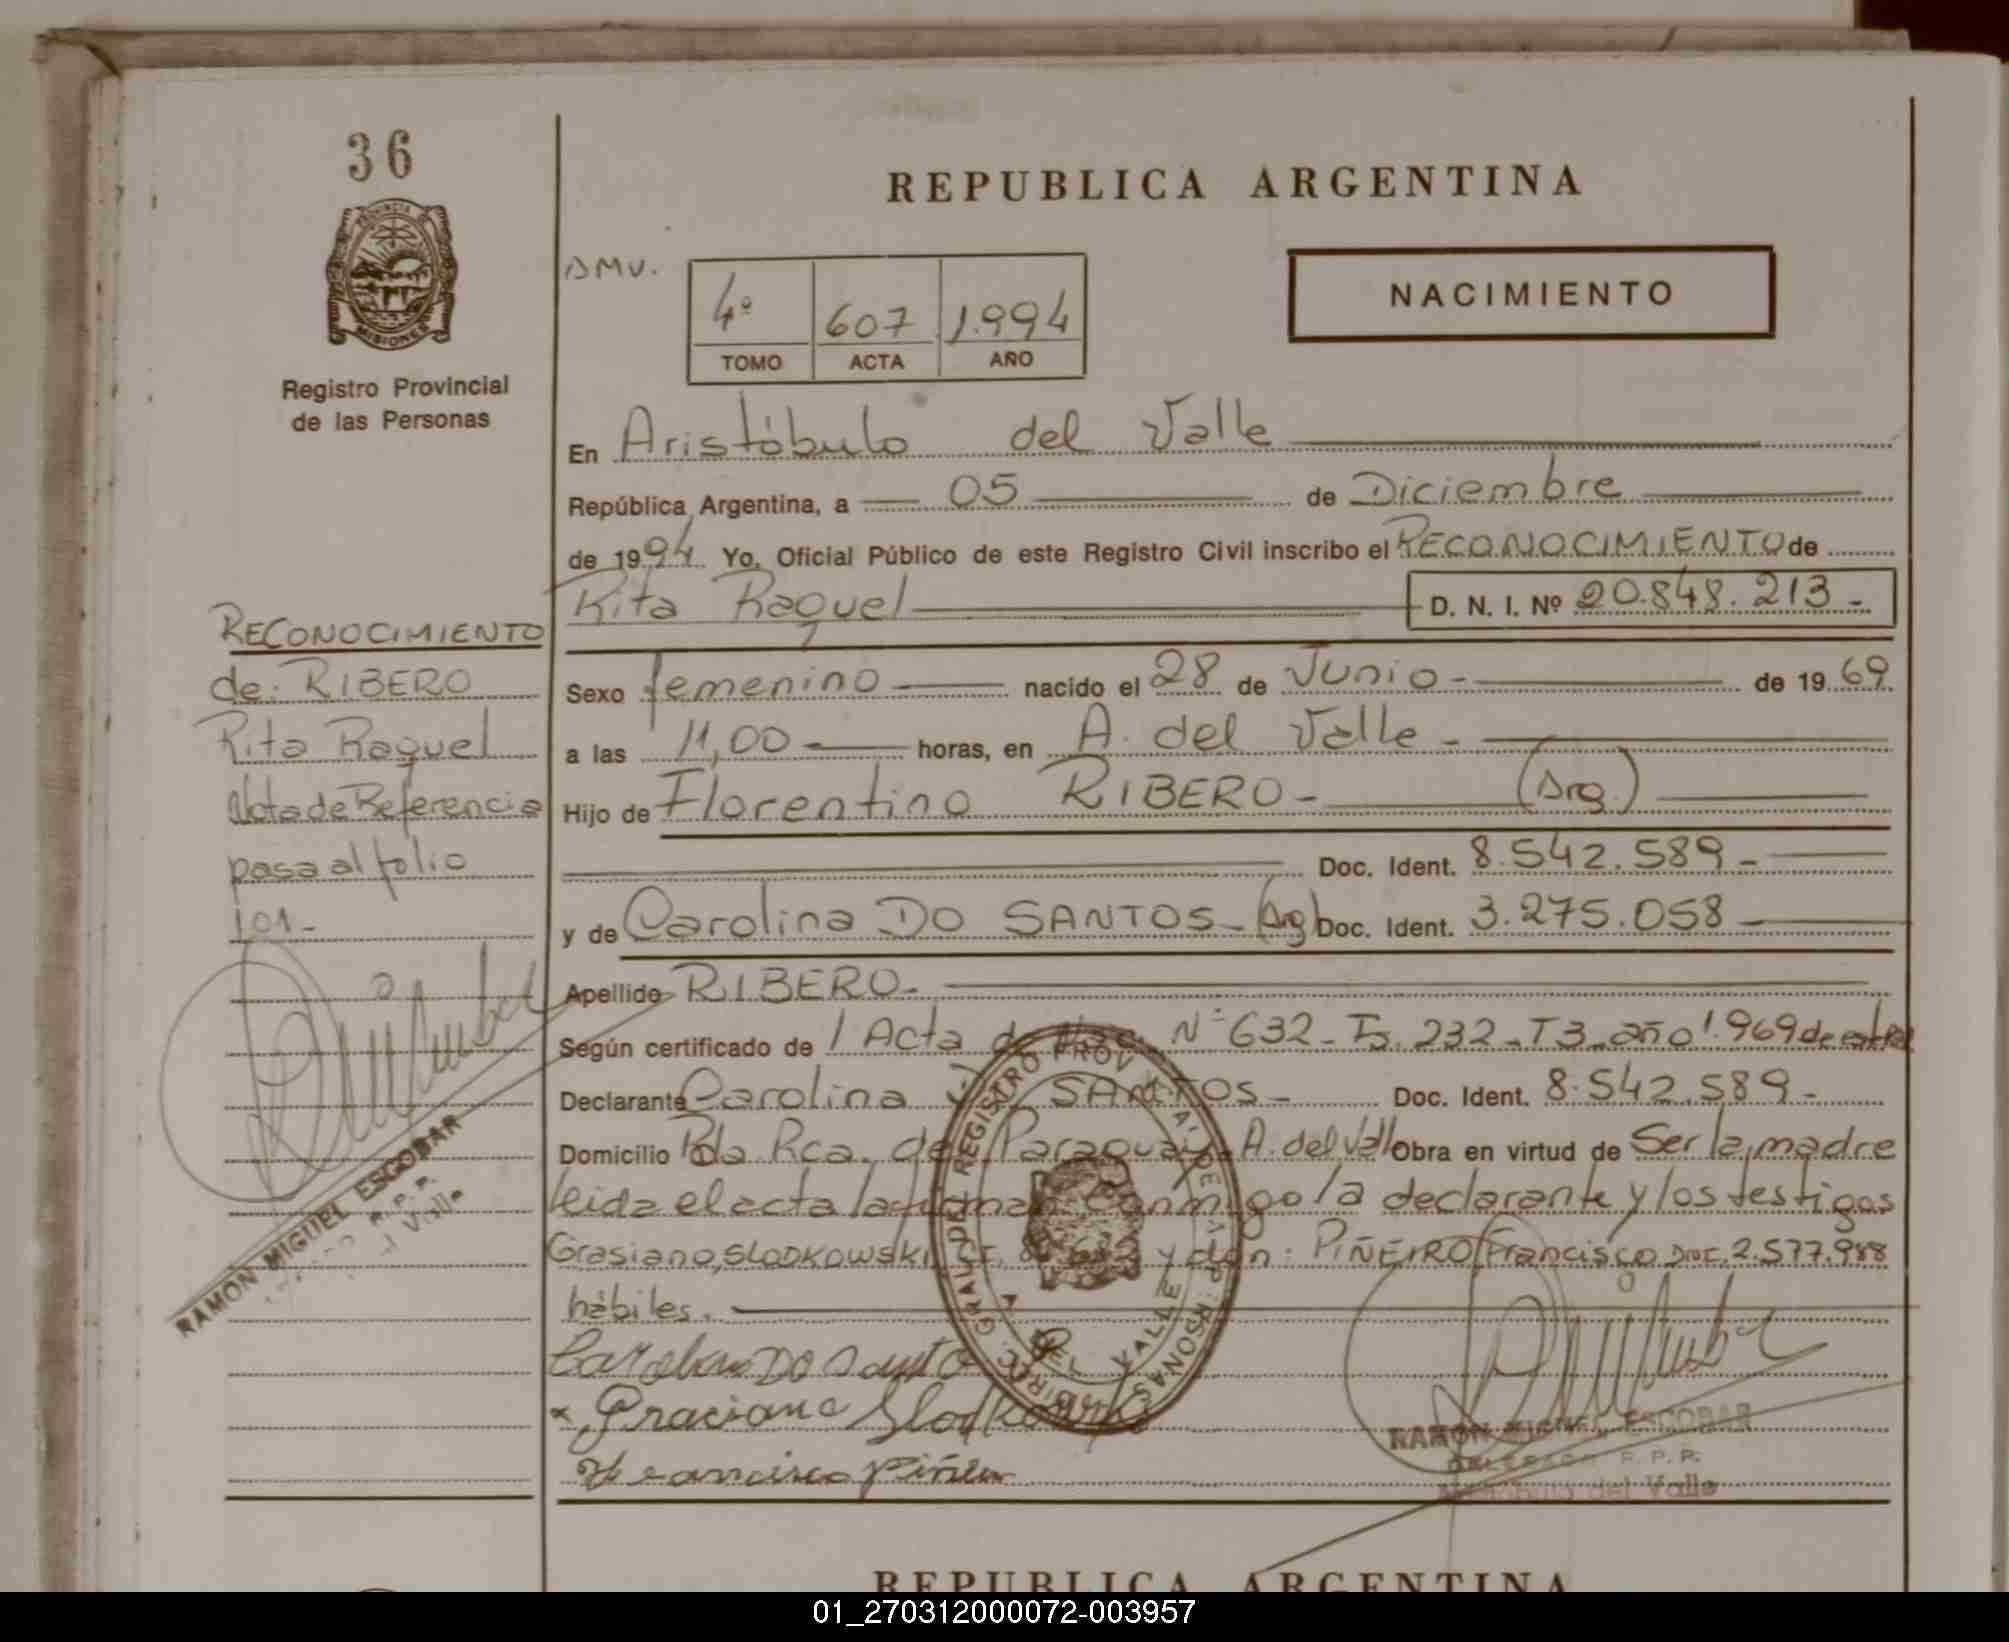 36
PROVINCIA DE
MISIONES
Registro Provincial
de las Personas
REPUBLICA ARGENTINA
NACIMIENTO
4º 607 1.994
TOMO ACTA AÑO
En Aristóbulo del Valle
República Argentina, a 05 de Diciembre
de 1994. Yo, Oficial Público de este Registro Civil inscribo el RECONOCIMIENTO de
Rita Raquel D. N. I. Nº 20.848.213-
Sexo femenino nacido el 28 de Junio - de 1969
a las 11,00 - horas, en A. del Valle -
Hijo de Florentino RIBERO - (Arg.)
Doc. Ident. 8.542.589 -
y de Carolina DO SANTOS - (Arg) Doc. Ident. 3.275.058 -
Apellido RIBERO -
Según certificado de 1 Acta de Nac. Nº 632 - Fº 232 - T3 - año 1.969 de esta
Declarante Carolina SANTOS - Doc. Ident. 8.542.589 -
Domicilio Pda Rca. del Paraguay A. del Valle Obra en virtud de Ser la madre
leida el acta la firman conmigo la declarante y los testigos
Grasiano, SLODKOWSKI y don: PIÑEIRO Francisco Doc. 2.577.988
hábiles.
Graciano Slodkowski
Francisco Piñeiro
RAMON MIGUEL ESCOBAR
R. P. P.
Aristobulo del Valle
DIREC. GRAL. DEL REGISTRO PROV. DE LAS PERSONAS
A. DEL VALLE
RECONOCIMIENTO
de: RIBERO
Rita Raquel
Nota de Referencia
pasa al folio
101 -
RAMON MIGUEL ESCOBAR
R. P. P.
Valle
REPUBLICA ARGENTINA
01_270312000072-003957